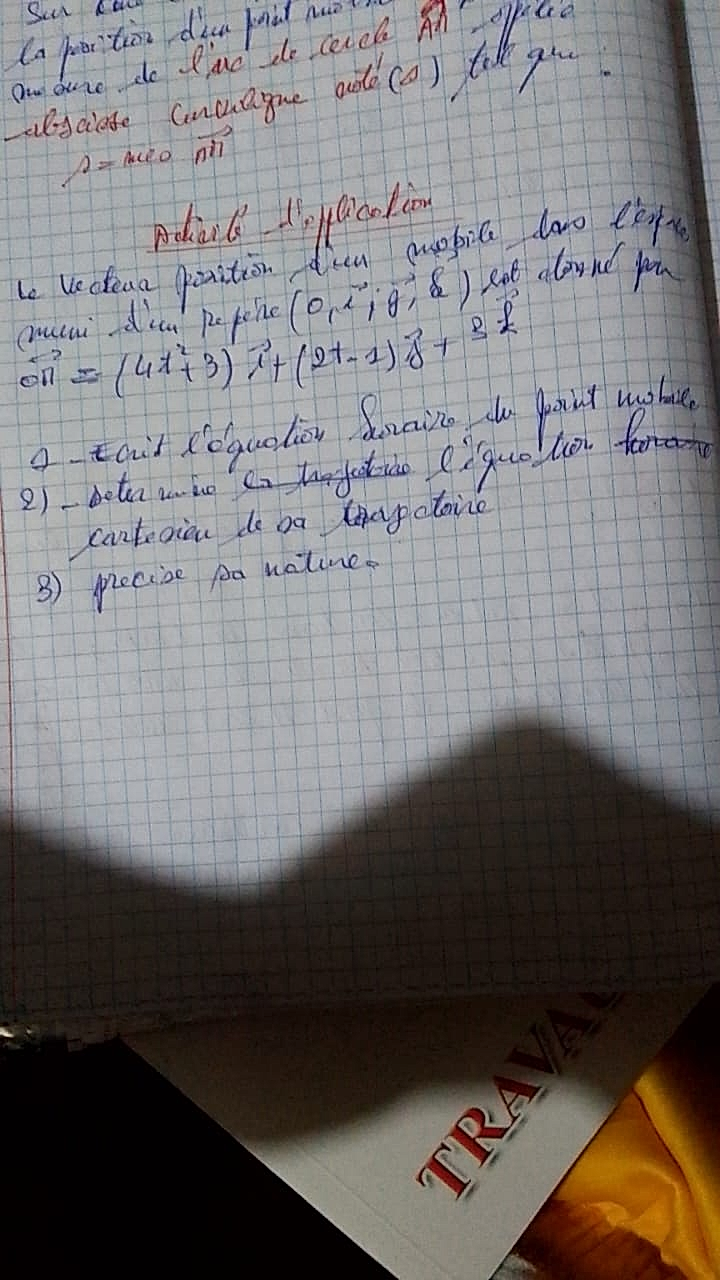 Sur
la position d'un point
mesure de l'arc de cercle
abscisse curviligne noté (s) tel que :
s = mes
Activité d'application
Le vecteur position d'un mobile dans l'espace
muni d'un repère (O, i, j, k) est donné par
OM = (4t² + 3) i + (2t - 1) j + 3 k
1 - Ecrit l'équation horaire du point mobile
2) - Determine la trajectoire l'équation horaire
cartesien de sa trajectoire
3) precise sa nature.
TRAVAU